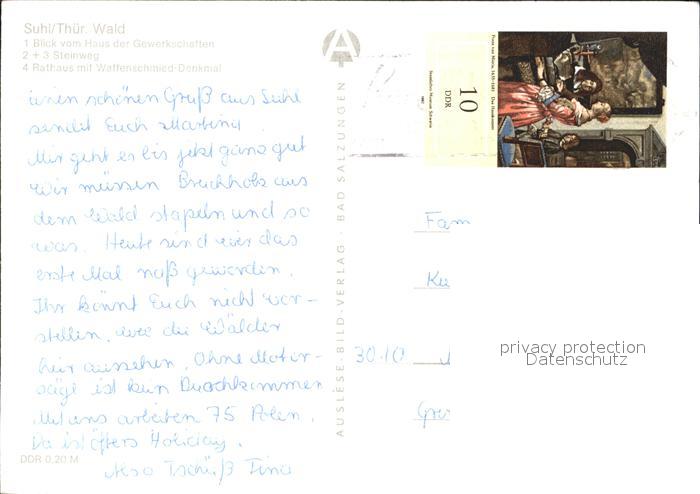 Suhl/Thür. Wald
1 Blick vom Haus der Gewerkschaften
2 + 3 Steinweg
4 Rathaus mit Waffenschmied-Denkmal
einen schönen Gruß aus Suhl
sendet Euch
Mir geht es bis jetzt ganz gut
Wir müssen Bruchholz aus
dem Wald stapeln und so
was. Heute sind wir das
erste Mal naß geworden.
Ihr könnt Euch nicht vor-
stellen, wie die Wälder
hier aussehen. Ohne Motor-
säge ist kein Durchkommen
Mit uns arbeiten 75 Polen.
Da ist öfters Holiday.
Also Tschüß Tina
DDR 0,20 M
AUSLESE-BILD-VERLAG · BAD SALZUNGEN
A
10
DDR
Frans van Mieris, 1635-1681 · Das Hauskonzert
Staatliches Museum Schwerin
Fam
30.10
privacy protection
Datenschutz